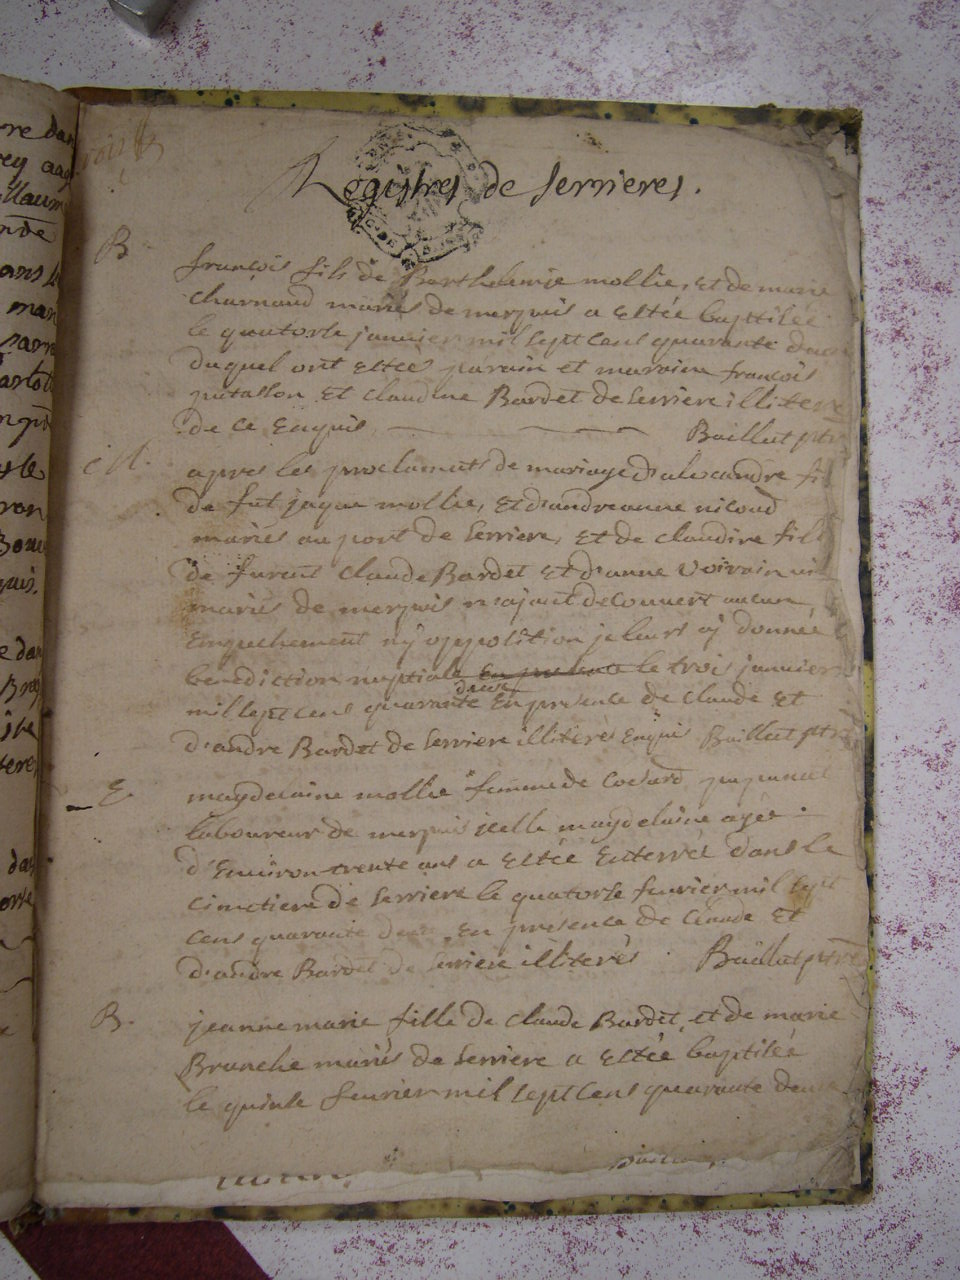 Registres de serrieres.
B.
françois fils de Barthelemie mollie, et de marie
charnaud mariés de merpuis a estée baptisée
le quatorse janvier mil sept cens quarante deux
duquel ont estées parain et maraine françois
putallon et claudine Bardet de serriere illiterés
de ce enquis Baillat ptre
M.
apres les proclamats de mariage d'alexandre fil
de fut jaque mollie, et d'andreanne niloud
mariés au port de serriere, et de claudine fille
de furent claude Bardet et d'anne voirain
mariés de merpuis n'ajant decouvert aucun
empechement nj opposition je leurs aj donnée
benediction nuptiale en presence le trois janvier
deux
mil sept cens quarante en presence de claude et
d'andre Bardet de serriere illiterés enquis Baillat ptre
E.
magdelaine mollie femme de
laboureur de merpuis jcelle magdelaine agée
d'environ trente ans a estée enterrée dans le
cimetiere de serriere le quatorse fevrier mil sept
cens quarante deux en presence de claude et
d'andre Bardet de serriere illiterés Baillat ptre
B.
jeanne marie fille de claude Bardet, et de marie
Brunche mariés de serriere a estée baptisée
le quinse fevrier mil sept cens quarante deux